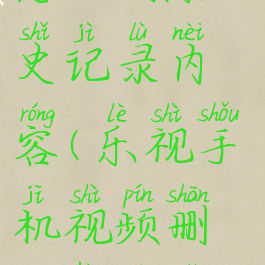 shǐ jì lù nèi
史记录内
róng lè shì shǒu
容(乐视手
jī shì pín shān
机视频删